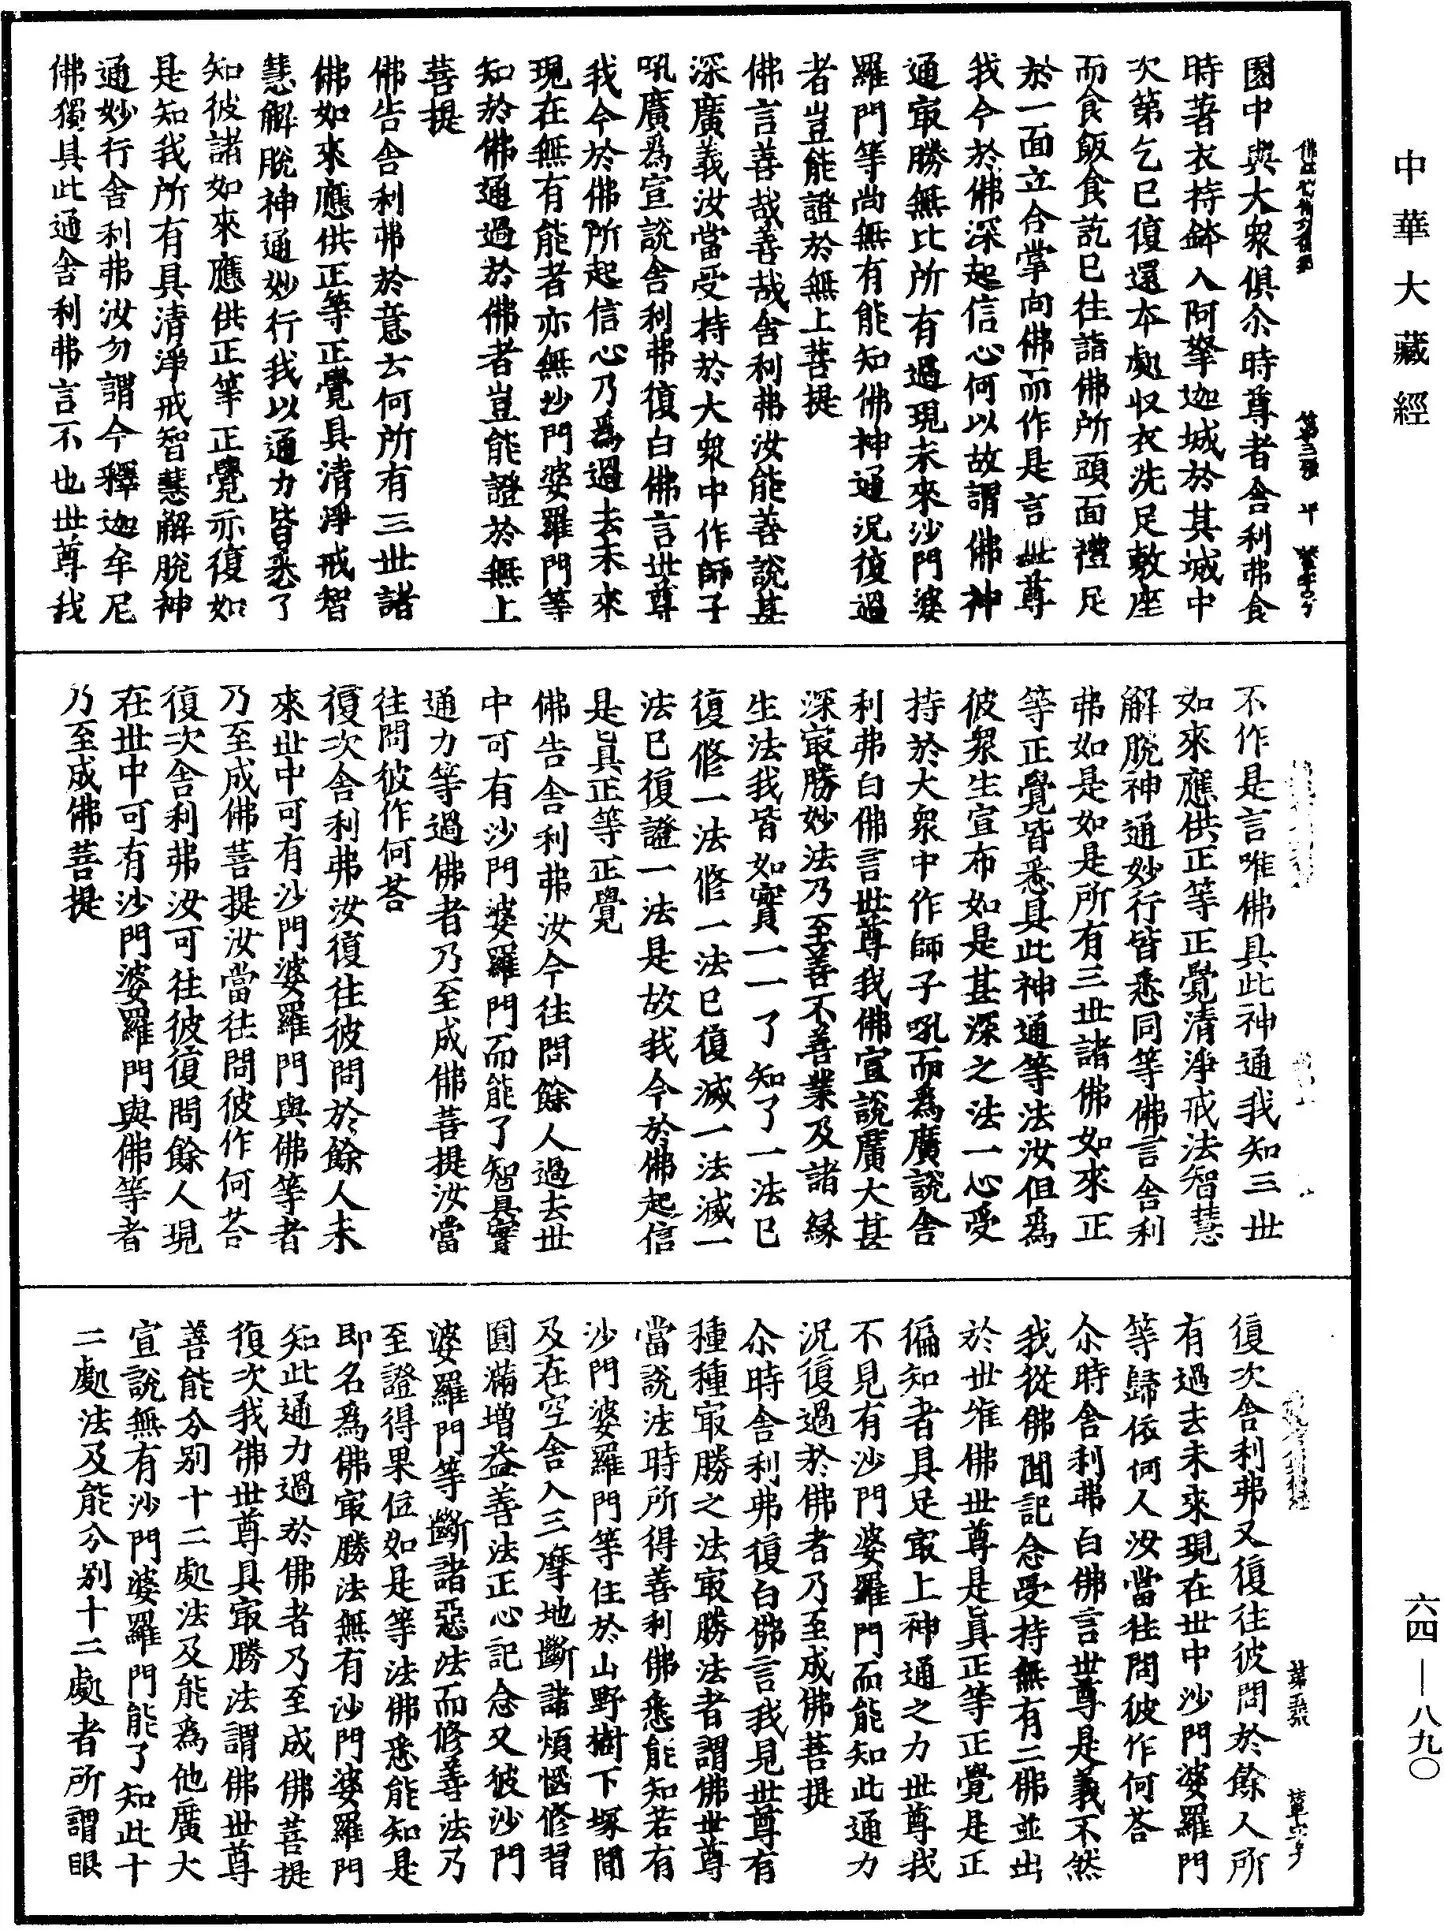 中華大藏經
六四—八九〇
園中與大衆俱尒時尊者舍利弗食
時著衣持鉢入阿拏迦城於其城中
次第乞已復還本處収衣洗足敷座
而食飯食訖已往詣佛所頭面禮足
於一面立合掌向佛而作是言世尊
我今於佛深起信心何以故謂佛神
通㝡勝無比所有過現未來沙門婆
羅門等尚無有能知佛神通況復過
者豈能證於無上菩提
佛言善哉善哉舍利弗汝能善說甚
深廣義汝當受持於大衆中作師子
吼廣爲宣說舍利弗復白佛言世尊
我今於佛所起信心乃爲過去未來
現在無有能者亦無沙門婆羅門等
知於佛通過於佛者豈能證於無上
菩提
佛告舍利弗於意云何所有三世諸
佛如來應供正等正覺具清淨戒智
慧解脫神通妙行我以通力皆悉了
知彼諸如來應供正等正覺亦復如
是知我所有具清淨戒智慧解脫神
通妙行舍利弗汝勿謂今釋迦牟尼
佛獨具此通舍利弗言不也世尊我
不作是言唯佛具此神通我知三世
如來應供正等正覺清淨戒法智慧
解脫神通妙行皆悉同等佛言舍利
弗如是如是所有三世諸佛如來正
等正覺皆悉具此神通等法汝但爲
彼衆生宣布如是甚深之法一心受
持於大衆中作師子吼而爲廣說舍
利弗白佛言世尊我佛宣說廣大甚
深㝡勝妙法乃至善不善業及諸緣
生法我皆如實一一了知了一法已
復修一法修一法已復滅一法滅一
法已復證一法是故我今於佛起信
是眞正等正覺
佛告舍利弗汝今往問餘人過去世
中可有沙門婆羅門而能了智具實
通力等過佛者乃至成佛菩提汝當
往問彼作何荅
復次舍利弗汝復往彼問於餘人未
來世中可有沙門婆羅門與佛等者
乃至成佛菩提汝當往問彼作何荅
復次舍利弗汝可往彼復問餘人現
在世中可有沙門婆羅門與佛等者
乃至成佛菩提
復次舍利弗又復往彼問於餘人所
有過去未來現在世中沙門婆羅門
等歸依何人汝當往問彼作何荅
尒時舍利弗白佛言世尊是義不然
我從佛聞記念受持無有二佛並出
於世唯佛世尊是眞正等正覺是正
徧知者具足㝡上神通之力世尊我
不見有沙門婆羅門而能知此通力
況復過於佛者乃至成佛菩提
尒時舍利弗復白佛言我見世尊有
種種㝡勝之法㝡勝法者謂佛世尊
當說法時所得善利佛悉能知若有
沙門婆羅門等住於山野樹下塚間
及在空舍入三摩地斷諸煩惱修習
圓滿增益善法正心記念又彼沙門
婆羅門等斷諸惡法而修善法乃
至證得果位如是等法佛悉能知是
即名爲佛㝡勝法無有沙門婆羅門
知此通力過於佛者乃至成佛菩提
復次我佛世尊具㝡勝法謂佛世尊
善能分別十二處法及能爲他廣大
宣說無有沙門婆羅門能了知此十
二處法及能分別十二處者所謂眼